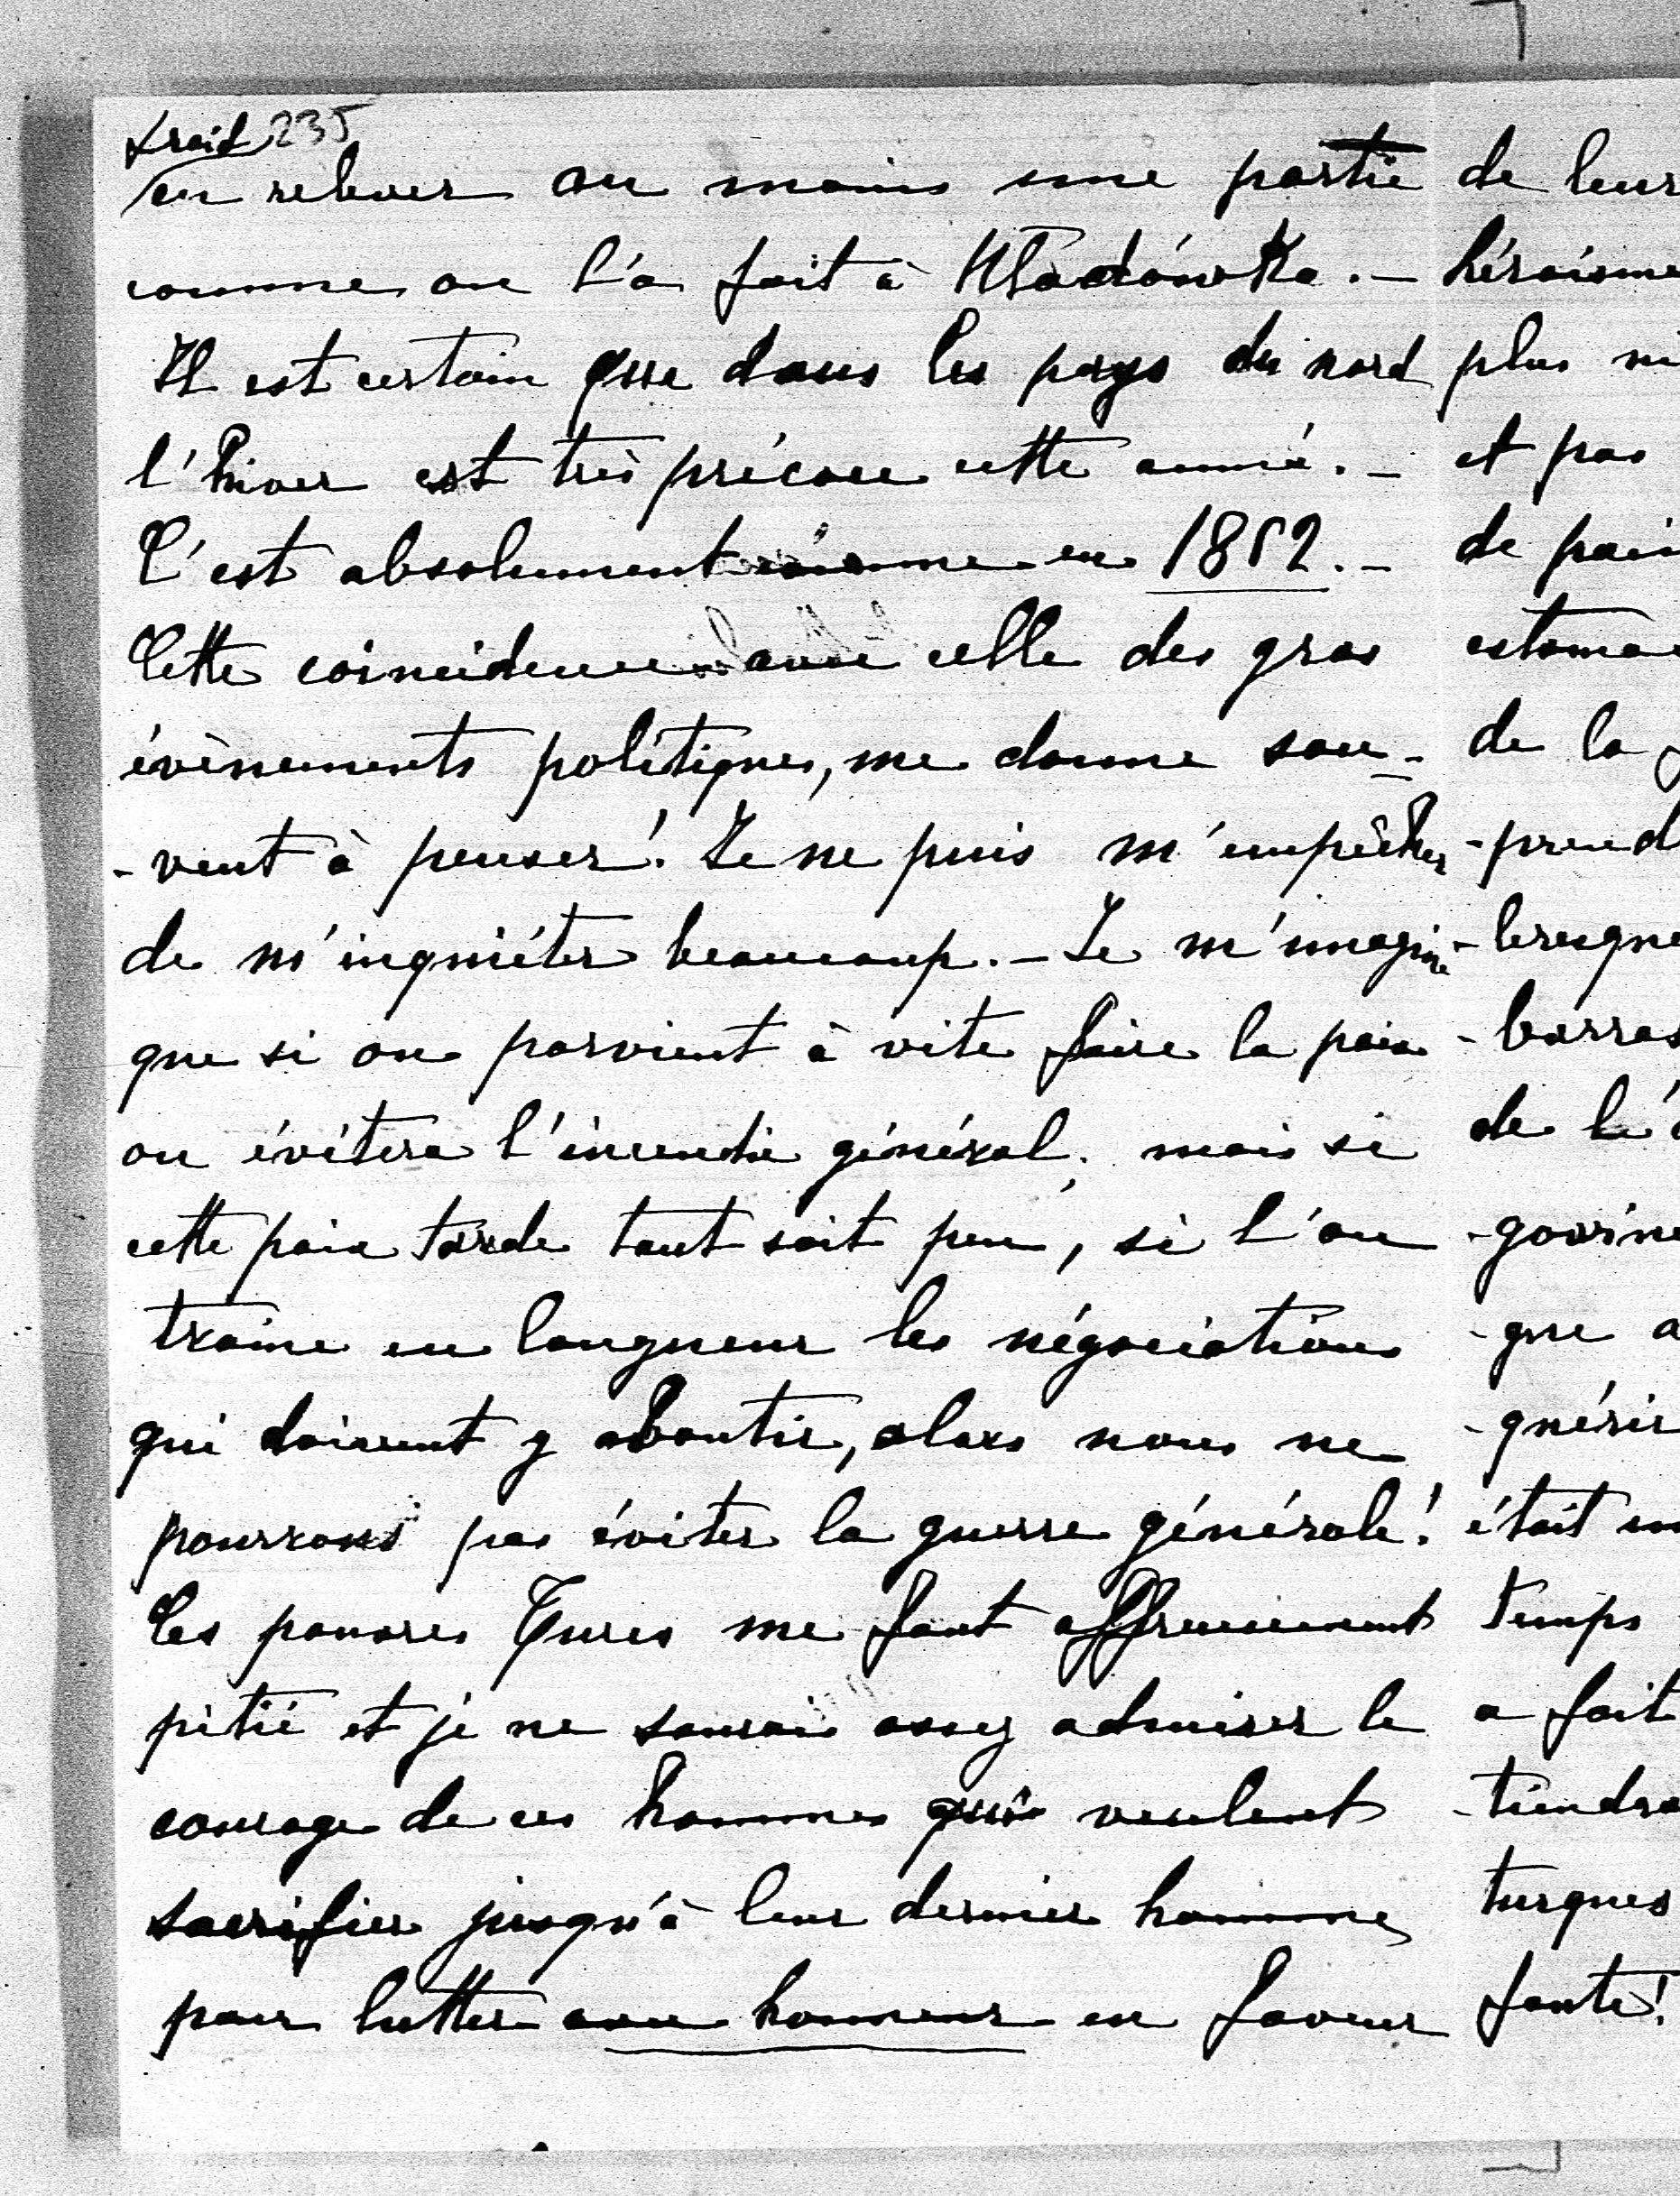 froid 235
en relever au moins une partie
comme on l'a fait à Kladówka. –
Il est certain que dans les pays du nord
l'hiver est très précoce cette année. –
C'est absolument comme en 1812. –
Cette coincidence avec celle des gros
évènements politiques, me donne sou-
-vent à penser! Je ne puis m'empêcher
de m'inquiéter beaucoup. – Je m'imagine
que si on parvient à vite faire la paix
on évitera l'incendie général; mais si
cette paix tarde tant soit peu, si l'on
traine en longueur les négociations
qui doivent y aboutir, alors nous ne
pourrons pas éviter la guerre générale!
Les pauvres Turcs me font affreusement
pitié et je ne saurais assez admirer le
courage de ces hommes qui veulent
sacrifier jusqu'à leur dernier homme
pour lutter avec honneur en faveur
de leur
héroïsme
plus
et pas
de pain
estomac
de la
-prend
-bresque
-barras
de l'
-gorine
-gre a
-quérir
était un
temps
a fait
-tiendra
turques
fonte!